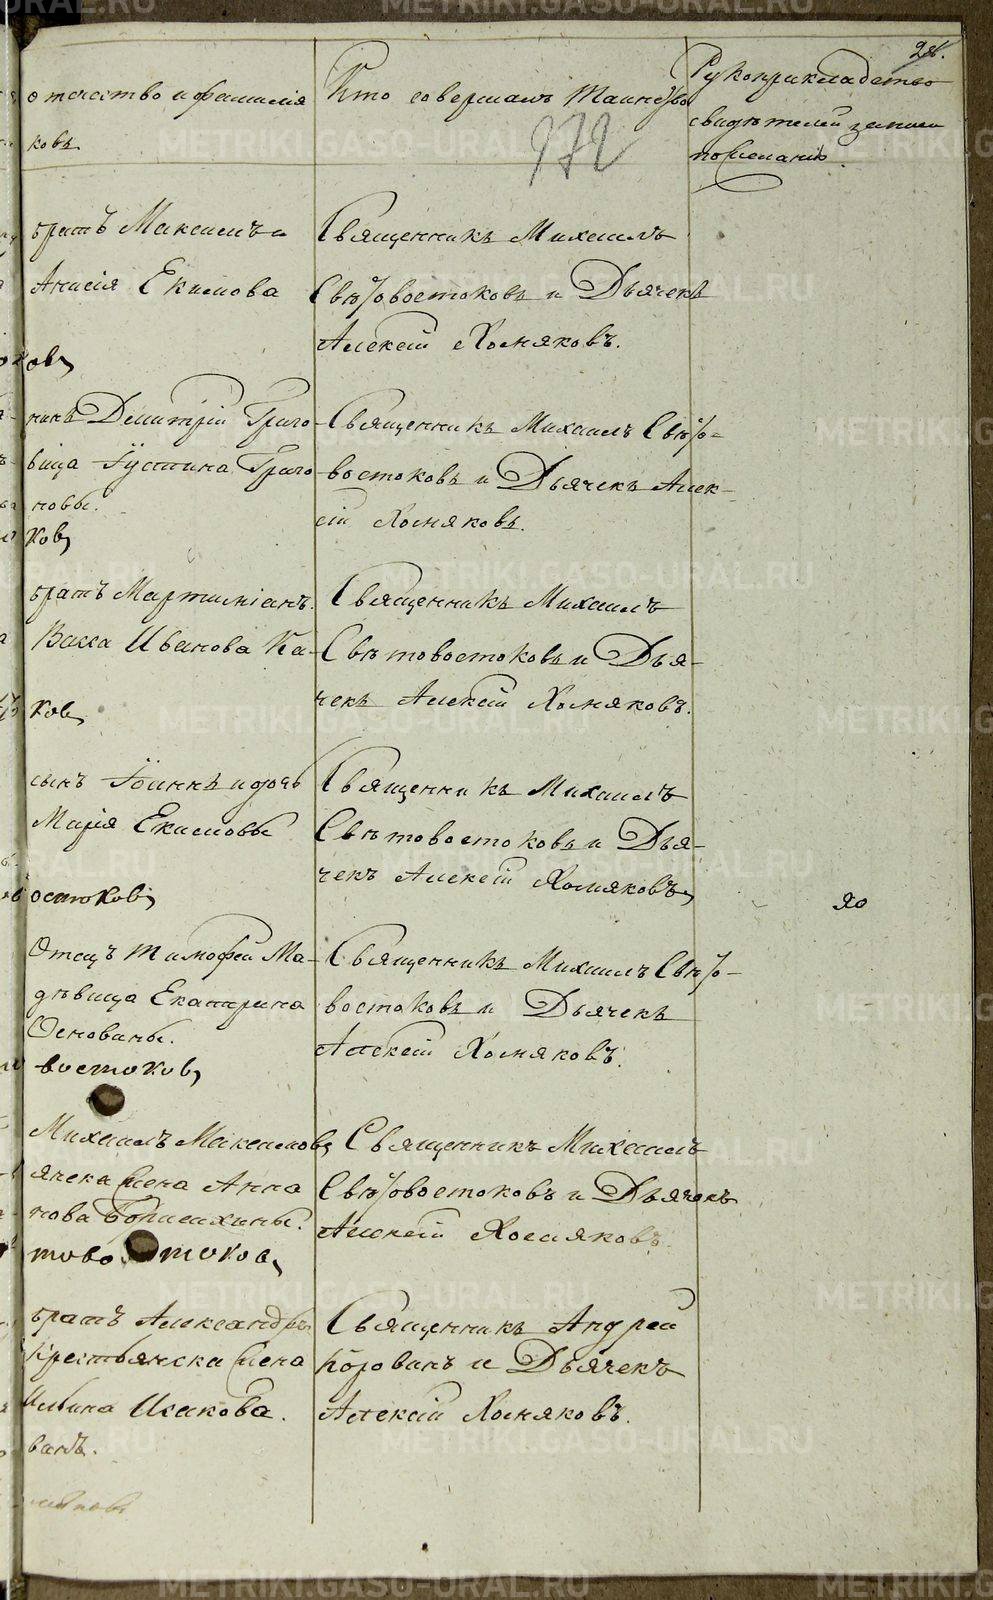 28.
отечество и фамилія
ковъ.
Кто совершалъ Таинство
172
Рукоприкладство
свидѣтелей записи
по желанію.
братъ Максимъ и
Анисія Екимова
ковъ,
Священникъ Михаилъ
Свѣтовостоковъ и Дьячекъ
Алексій Хомяковъ.
нинъ Димитрій Григо-
вица Іустина Григо-
новы.
ковъ,
Священникъ Михаилъ Свѣто-
востоковъ и Дьячекъ Алек-
сій Хомяковъ.
братъ Мартиніанъ.
Васса Иванова Ка-
ковъ,
Священникъ Михаилъ
Свѣтовостоковъ и Дья-
чекъ Алексій Хомяковъ.
сынъ Іоаннъ и дочь
Марія Екимовы
востоковъ,
Священникъ Михаилъ
Свѣтовостоковъ и Дья-
чекъ Алексій Хомяковъ,
яо
Отецъ Тимофей Ма-
дѣвица Екатерина
востоковъ,
Священникъ Михаилъ Свѣто-
востоковъ и Дьячекъ
Алексій Хомяковъ.
Михаилъ Максимовъ,
ячека жена Анна
товостоковъ,
Священникъ Михаилъ
Свѣтовостоковъ и Дьячекъ
Алексій Хомяковъ.
братъ Александръ
Крестьянска жена
Ильина Исакова.
ванъ.
Священникъ Андрей
Корованъ и Дьячекъ
Алексій Хомяковъ.